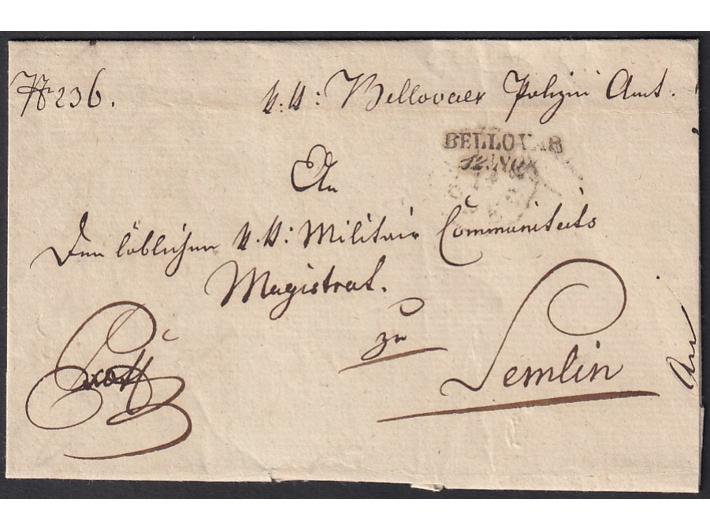 Nr 236.
k.k: Bellovaer Polizei Amt.
BELLOVAR
12. NOV
An
Den löblichen k.k: Militair Communitäts
Magistrat.
zu
Semlin